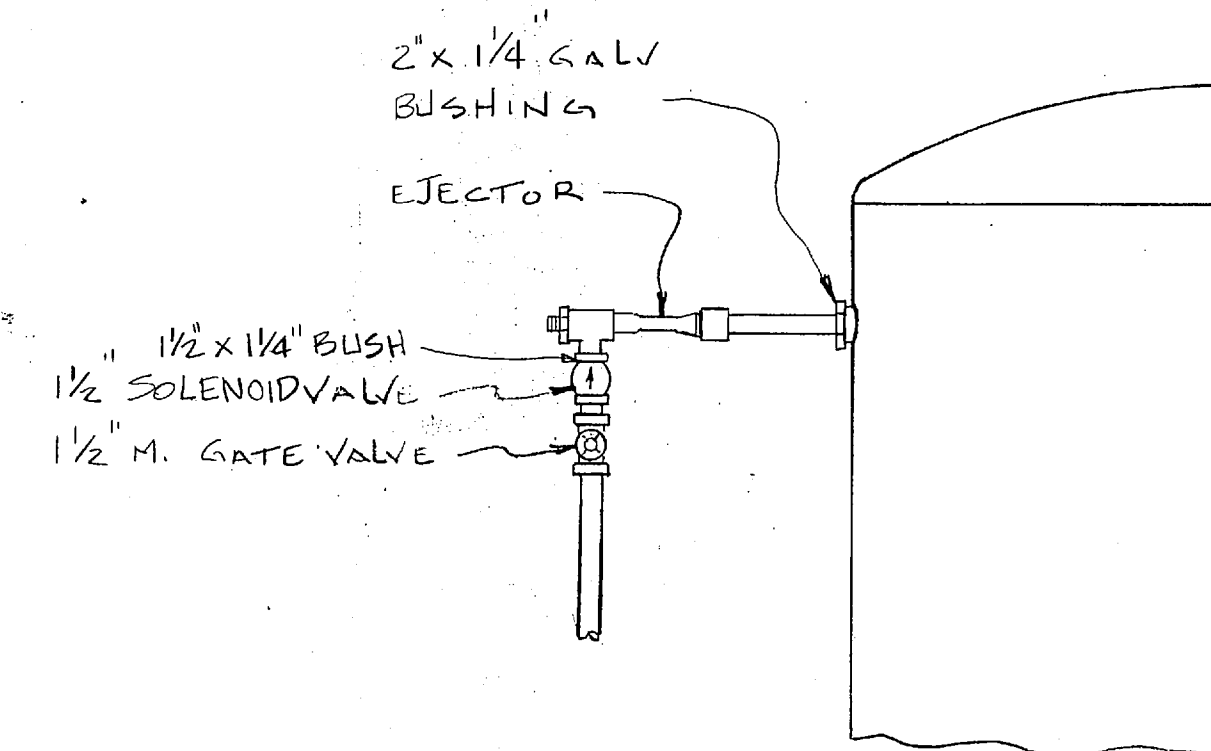 2" x 1 1/4" GALV
BUSHING
EJECTOR
1 1/2" x 1 1/4" BUSH
1 1/2" SOLENOID VALVE
1 1/2" M. GATE VALVE